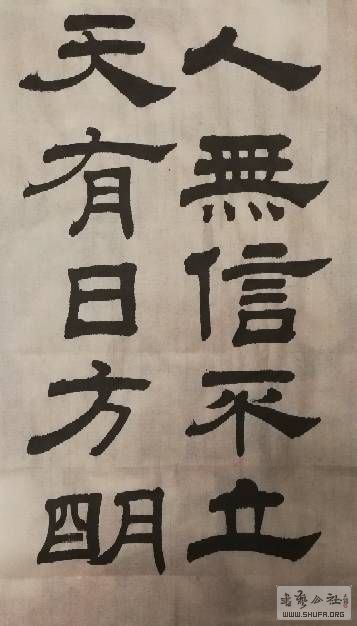 人無信不立
天有日方明
書藝公社
WWW.SHUFA.ORG